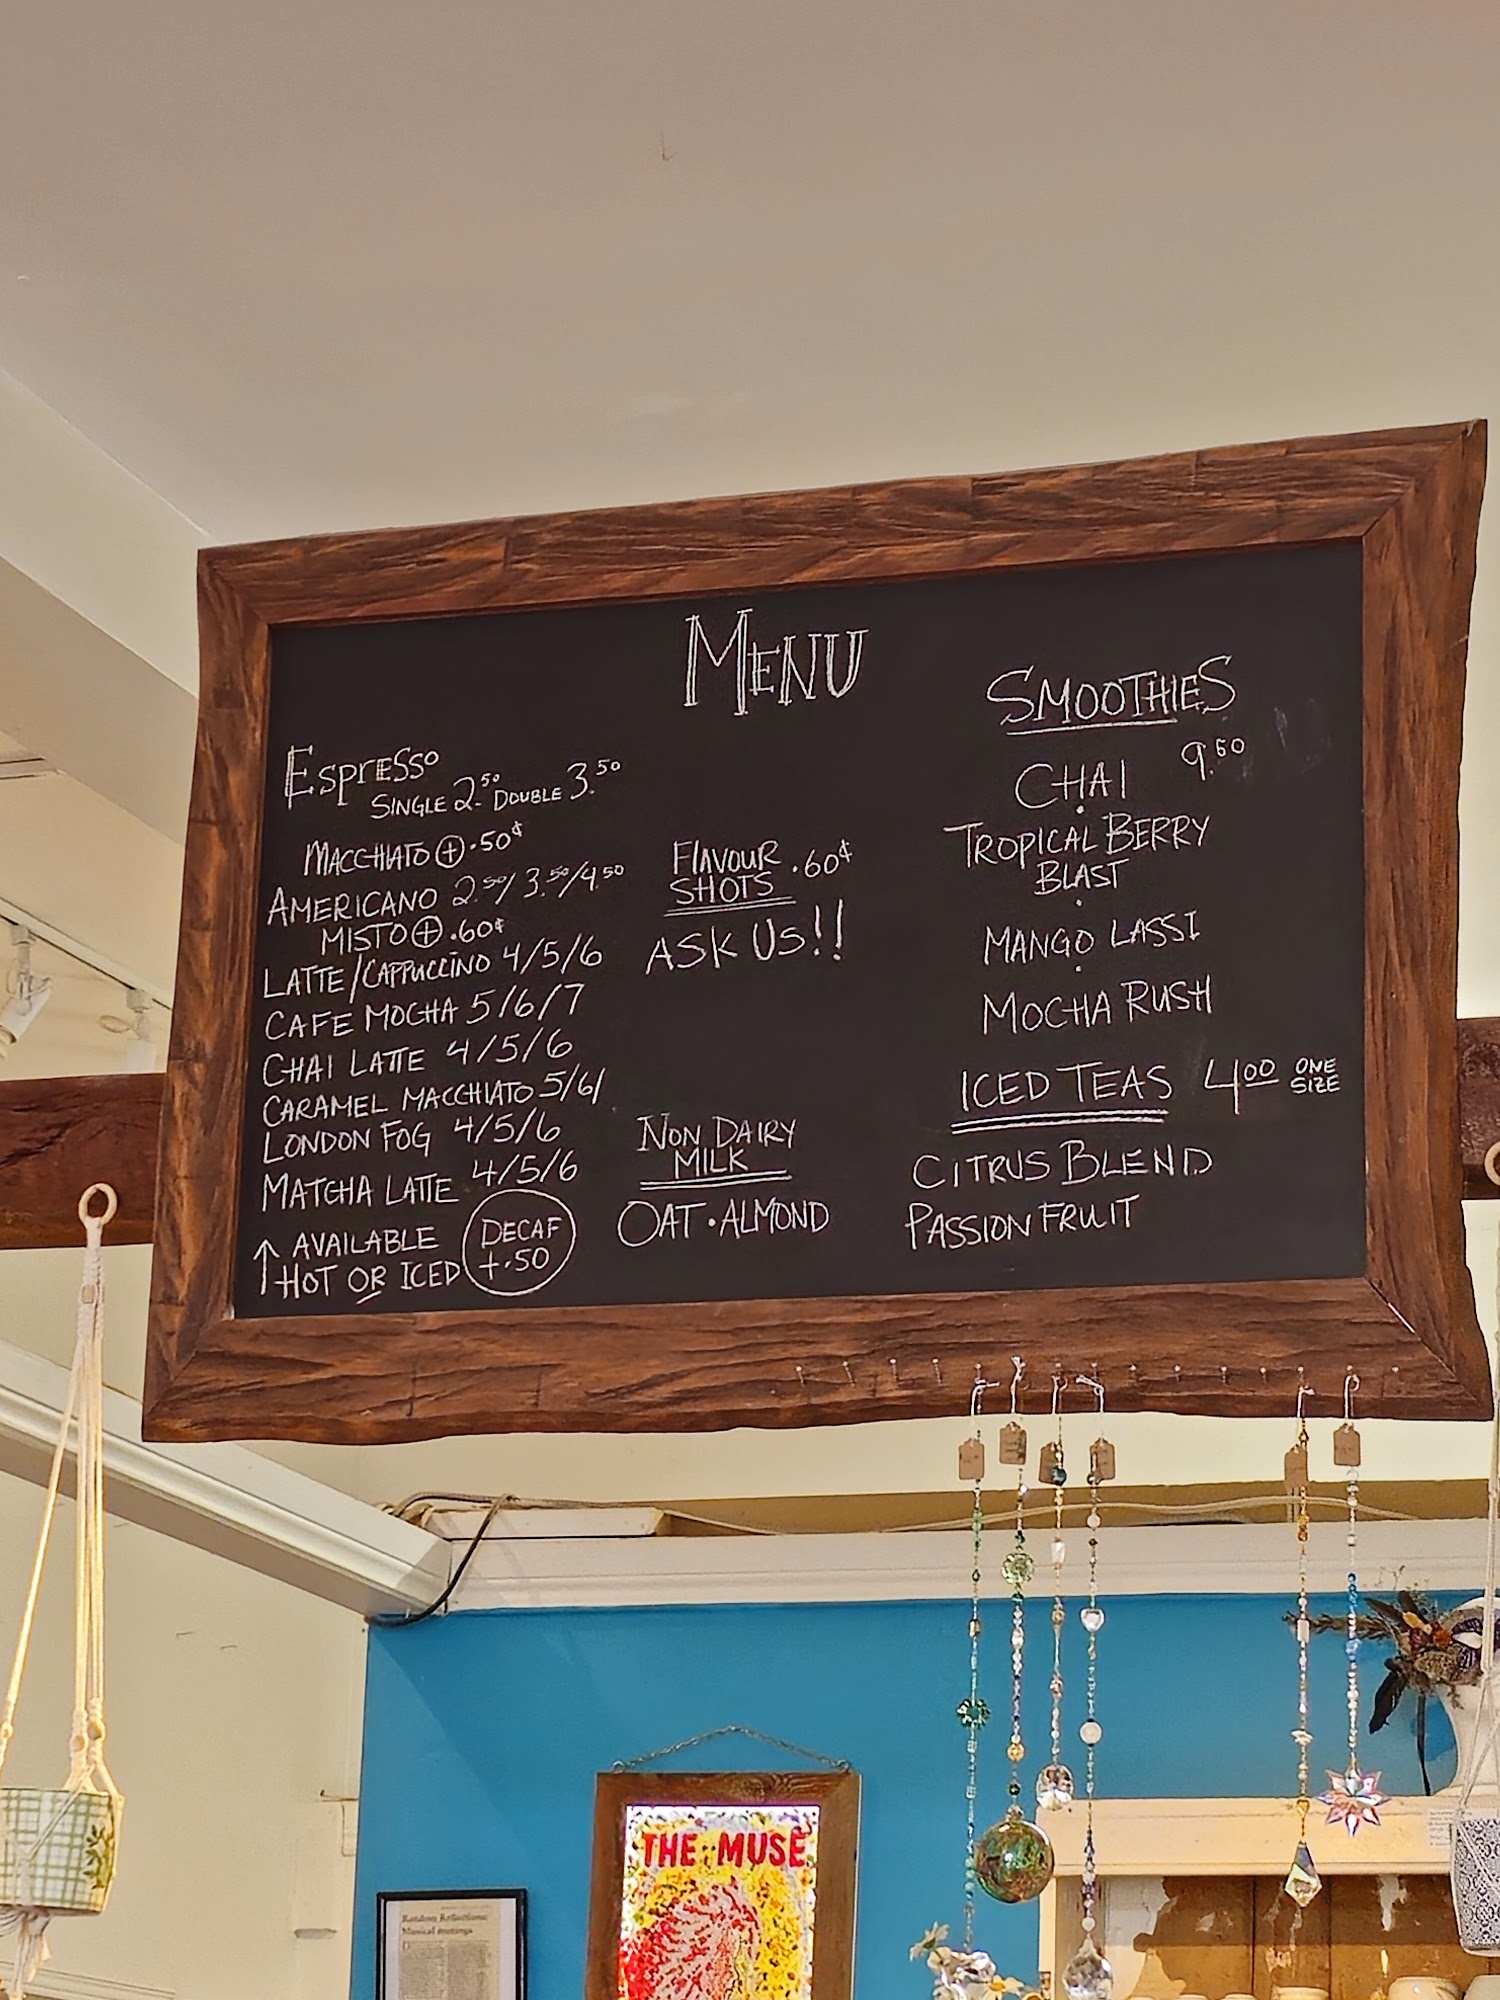 MENU
ESPRESSO
SINGLE 2.50 DOUBLE 3.50
MACCHIATO ⊕ .50¢
AMERICANO 2.50/3.50/4.50
MISTO ⊕ .60¢
LATTE/CAPPUCCINO 4/5/6
CAFE MOCHA 5/6/7
CHAI LATTE 4/5/6
CARAMEL MACCHIATO 5/6/
LONDON FOG 4/5/6
MATCHA LATTE 4/5/6
↑ AVAILABLE
HOT OR ICED
DECAF
+.50
FLAVOUR
SHOTS .60¢
ASK US!!
NON DAIRY
MILK
OAT • ALMOND
SMOOTHIES
9.50
CHAI
•
TROPICAL BERRY
BLAST
•
MANGO LASSI
•
MOCHA RUSH
ICED TEAS 4.00 ONE
SIZE
CITRUS BLEND
PASSION FRUIT
THE MUSE
Random Reflections:
Musical meetings